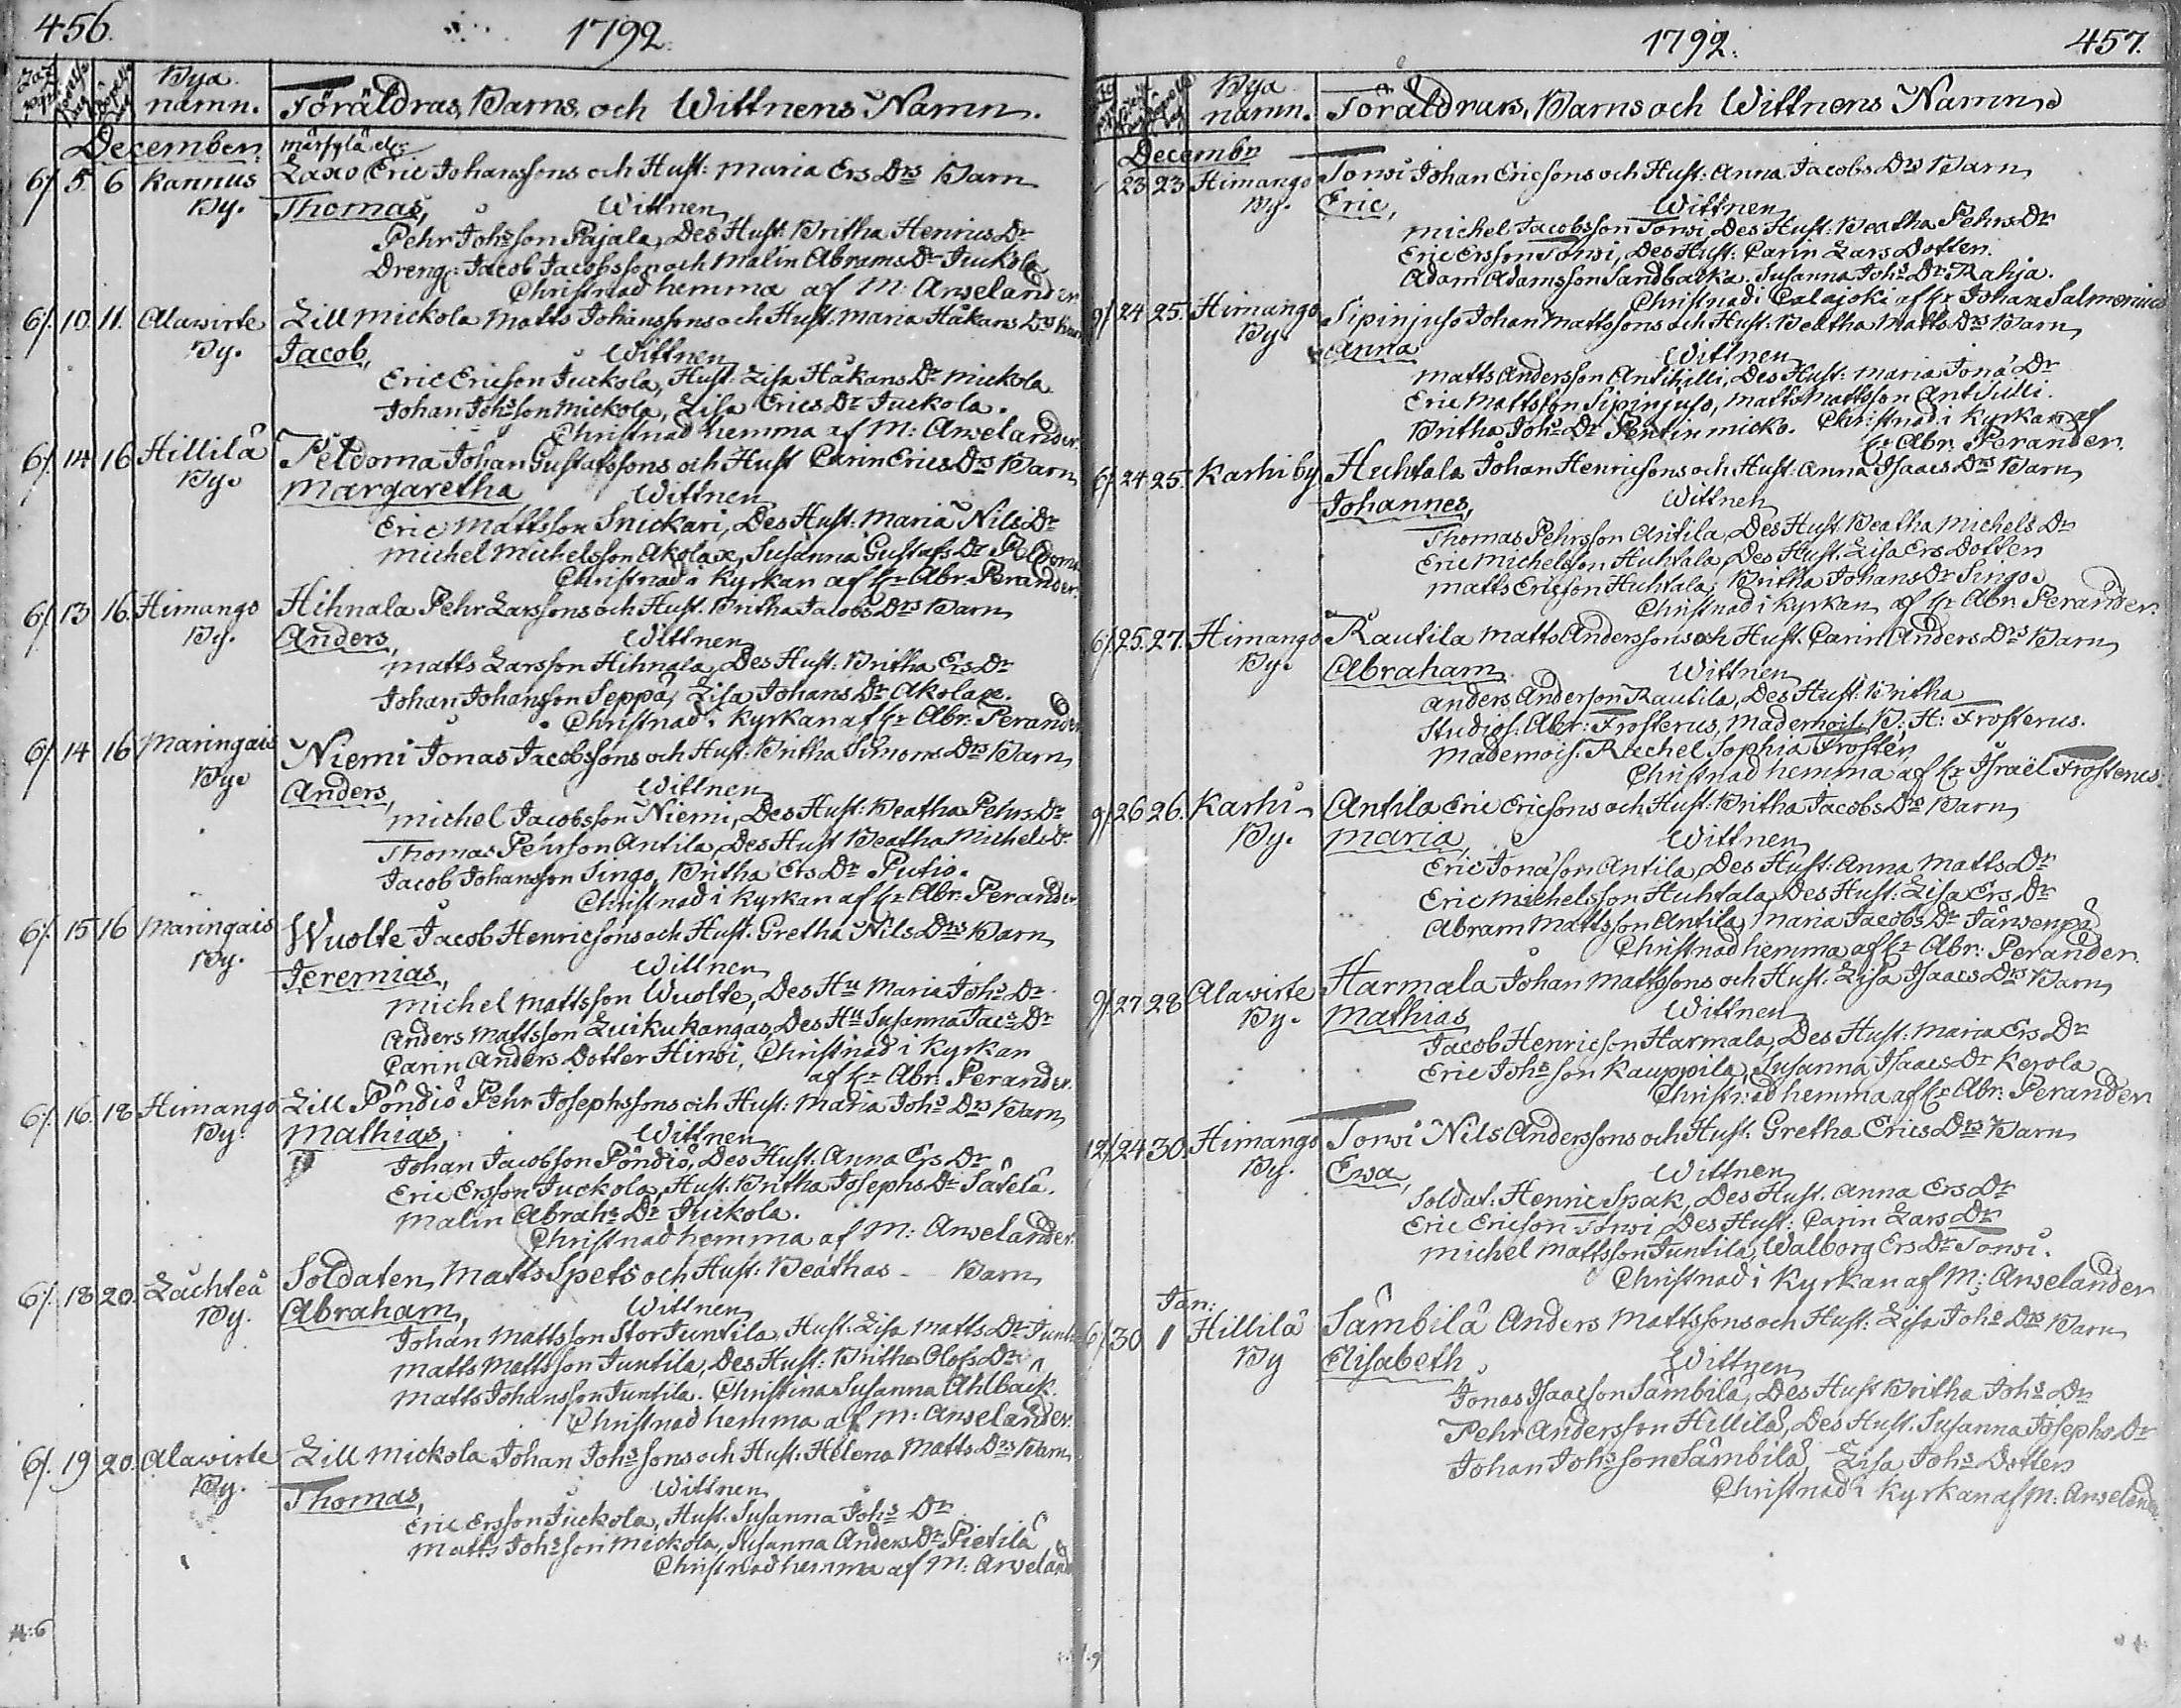 456.
1792.
Bya namn.
Föräldras, Barns, och Wittnens Namn.
December: märsylä el:
6/. 5 6 Kannus Laxo Eric Johanssons och Hust: Maria Ers Drs Barn
By. Thomas, Wittnen
Pehr Johs son Pajala, Des Hust: Britha Henrics Dr
Dreng: Jacob Jacobsson och Malin Abrams Dr Juckola
Christnad hemma af M: Arwelander.
6/. 10. 11. Alawirte Lill Mickola Matts Johanssons och Hust. Maria Håkans Drs Barn
By. Jacob, Wittnen
Eric Ericson Juckola, Hust. Lisa Håkans Dr Mickola
Johan Johs son Mickola, Lisa Erics Dr Juckola.
Christnad hemma af M: Arwelander.
6/. 14 16 Hillilä Peldoma Johan Gustafssons och Hust Carin Erics Drs Barn
By. Margaretha Wittnen
Eric Mattsson Snickari, Des Hust. Maria Nils Dr
Michel Michelsson Akolax, Susanna Gustafs Dr Peldoma
Christnad i Kyrkan af Hr Abr. Perander.
6/. 13 16. Himango Hihnala Pehr Larssons och Hust. Britha Jacobs Drs Barn
By. Anders, Wittnen
Matts Larsson Hihnala, Des Hust: Britha Ers Dr
Johan Johansson Seppä, Lisa Johans Dr Akolax.
Christnad i Kyrkan af Hr Abr: Perander
6/. 14 16 Maringais Niemi Jonas Jacobssons och Hust: Britha Simons Drs Barn
By. Anders, Wittnen
Michel Jacobsson Niemi, Des Hust: Beatha Pehrs Dr
Thomas Pehrson Antila, Des Hust Beatha Michels Dr
Jacob Johansson Singo, Britha Ers Dr Putio.
Christnad i Kyrkan af Hr Abr: Perander
6/. 15 16 Maringais Wuolte Jacob Henricsons och Hust. Gretha Nils Drs Barn
By. Jeremias, Wittnen
Michel Mattsson Wuolte, Des Hu Maria Johs Dr
Anders Mattsson Luikukangas, Des Hu Susanna Jacs Dr
Carin Anders Dotter Hirwi, Christnad i Kyrkan
af Hr Abr: Perander.
6/. 16. 18 Himango Lill Pöndiö Pehr Josephssons och Hust: Maria Johs Drs Barn
By: Mathias, Wittnen
Johan Jacobsson Pöndiö, Des Hust. Anna Ers Dr
Eric Ersson Juckola, Hust: Britha Josephs Dr Säkelä.
Malin Abrahs Dr Juckola.
Christnad hemma af M: Arwelander.
6/. 18 20. Lachteå Soldaten Matts Spets och Hust: Beathas - Barn
By. Abraham, Wittnen
Johan Mattsson Stor Juntila, Hust. Lisa Matts Dr Junt
Matts Mattsson Juntila, Des Hust: Britha Olofs Dr
Matts Johansson Juntila. Christina Susanna Ahlbäck.
Christnad hemma af M: Arwelander.
6/. 19 20. Alawirte Lill Mickola Johan Johs sons och Hust: Helena Matts Drs Barn
By. Thomas, Wittnen
Eric Ersson Juckola, Hust. Susanna Johs Dr
Matts Johs son Mickola, Susanna Anders Dr Pietilä
Christnad hemma af M: Arweland
1792.
457.
Bya namn.
Föräldrars, Barns och Wittnens Namn
Decembr
23 23 Himango Torwi Johan Ericsons och Hust: Anna Jacobs Drs Barn
By. Eric, Wittnen
Michel Jacobsson Torwi, Des Hust: Beatha Pehrs Dr
Eric Ersson Torwi, Des Hust: Carin Lars Dotter.
Adam Adamsson Sandbacka. Susanna Johs Dr Rahja.
Christnad i Calajoki af Hr Johan Salmenius
9/. 24 25. Himango Sipinjuso Johan Mattssons och Hust: Beatha Matts Drs Barn
By. Anna Wittnen
Matts Andersson Antihilli, Des Hust: Maria Jona Dr
Eric Mattsson Sipinjuso, Matts Mattsson Antihilli.
Britha Johs Dr Pentin micko. Christnad i Kyrkan af
Hr Abr. Perander.
6/. 24 25. Karhi by Huhtala Johan Henricsons och Hust: Anna Isaacs Drs Barn
Johannes, Wittnen
Thomas Pehrsson Antila, Des Hust. Beatha Michels Dr
Eric Michelsson Huhtala, Des Hust. Lisa Ers Dotter
Matts Ericson Huhtala, Britha Johans Dr Singo.
Christnad i Kyrkan af Hr Abr. Perander.
6/. 25. 27. Himango Rautila Matts Anderssons och Hust. Carin Anders Drs Barn
By. Abraham Wittnen
Anders Anderson Rautila, Des Hust: Britha
Studios. Abr: Frosterus, Mademois. B: H: Frosterus.
Mademois. Rachel Sophia Frostén
Christnad hemma af Hr Israël Frosterus.
9/. 26 26. Karhi- Antila Eric Ericsons och Hust: Britha Jacobs Drs Barn
By. Maria, Wittnen
Eric Jonasson Antila, Des Hust: Anna Matts Dr
Eric Michelsson Huhtala, Des Hust: Lisa Ers Dr
Abram Mattsson Antila, Maria Jacobs Dr Järwenpä
Christnad hemma af Hr Abr: Perander.
9/. 27 28 Alawirte Harmala Johan Mattssons och Hust: Lisa Isaacs Drs Barn
By. Mathias Wittnen
Jacob Henricson Harmala, Des Hust: Maria Ers Dr
Eric Johs son Kauppila, Susanna Isaacs Dr Kerola
Christnad hemma af Hr Abr: Perander
12/. 24 30. Himango Torwi Nils Anderssons och Hust: Gretha Erics Drs Barn
By. Ewa, Wittnen
Soldat. Henric Spak, Des Hust. Anna Ers Dr
Eric Ericson Torwi, Des Hust: Carin Lars Dr
Michel Mattsson Juntila, Walborg Ers Dr Torwi.
Christnad i Kyrkan af M: Arwelander
Jan:
6/. 30 1 Hillilä Sämbilä Anders Mattssons och Hust: Lisa Johs Drs Barn
By Elisabeth Wittnen
Jonas Isaacson Sämbilä, Des Hust Britha Johs Dr
Pehr Andersson Hillilä, Des Hust. Susanna Josephs Dr
Johan Johs son Sämbilä, Lisa Johs Dotter
Christnad i Kyrkan af M: Arwelander.